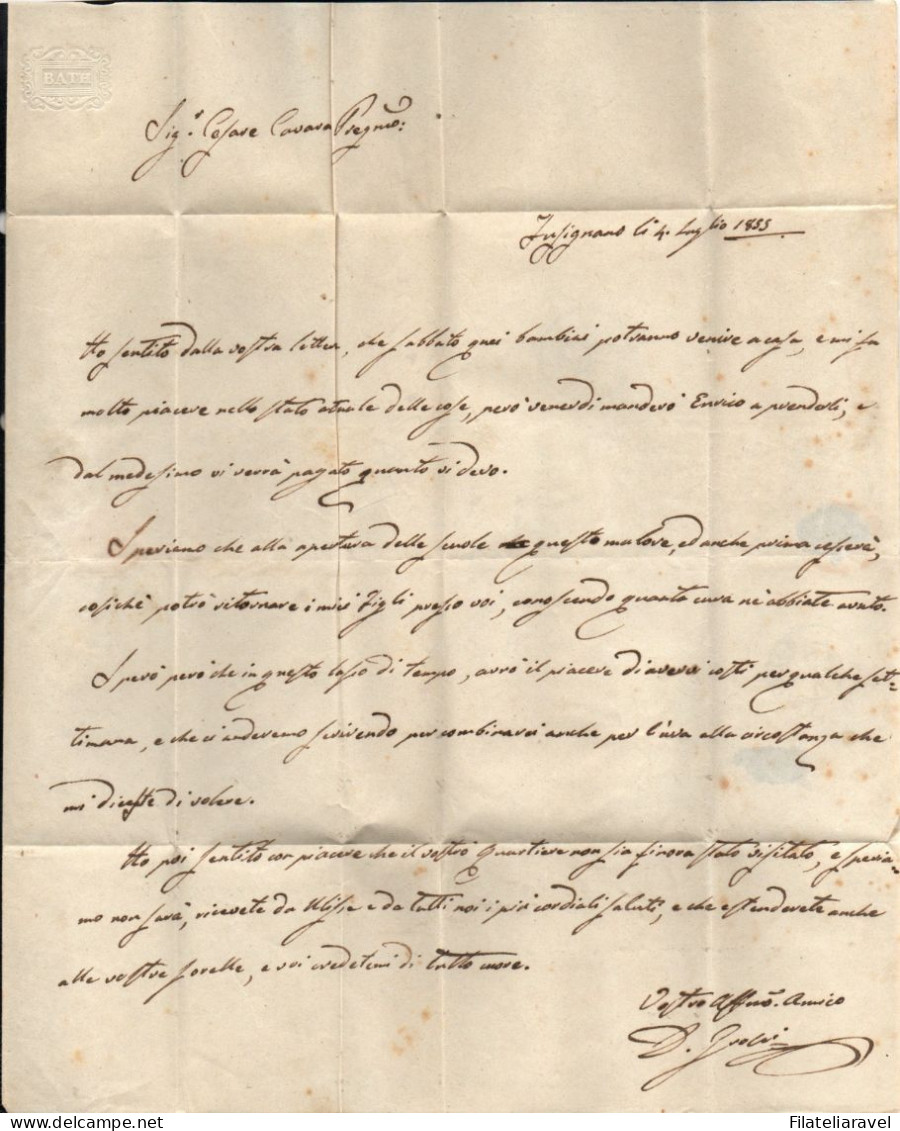 BATH
Sig.r Cesare Cavara Pregmo:
Fusignano li 4. Luglio 1855.
Ho sentito dalla vostra lettera, che sabbato quei bambini potranno venire a casa, e mi fa
molto piacere nello stato atuale delle cose, però venerdi manderò Enrico a prenderli, e
dal medesimo vi verrà pagato quanto vi devo.
Speriamo che alla apertura delle scuole questo malore, ed anche prima cesserà,
cosichè potrò ritornare i miei Figli presso voi, conoscendo quanta cura nè abbiate avuto.
Sperò però che in questo lasso di tempo, avrò il piacere di avervi costì per qualche set=
timana, e che ci anderemo scrivendo per combinarci anche per l'uva alla circostanza che
mi diceste di volere.
Ho poi sentito con piacere che il vostro Quartiere non sia finora stato visitato, e speria=
mo non sarà, ricevete da Ulisse e da tutti noi i più cordiali saluti, e che estenderete anche
alle vostre sorelle, e voi credetemi di tutto cuore.
Vostro Affmo. Amico
D.
Filateliaravel